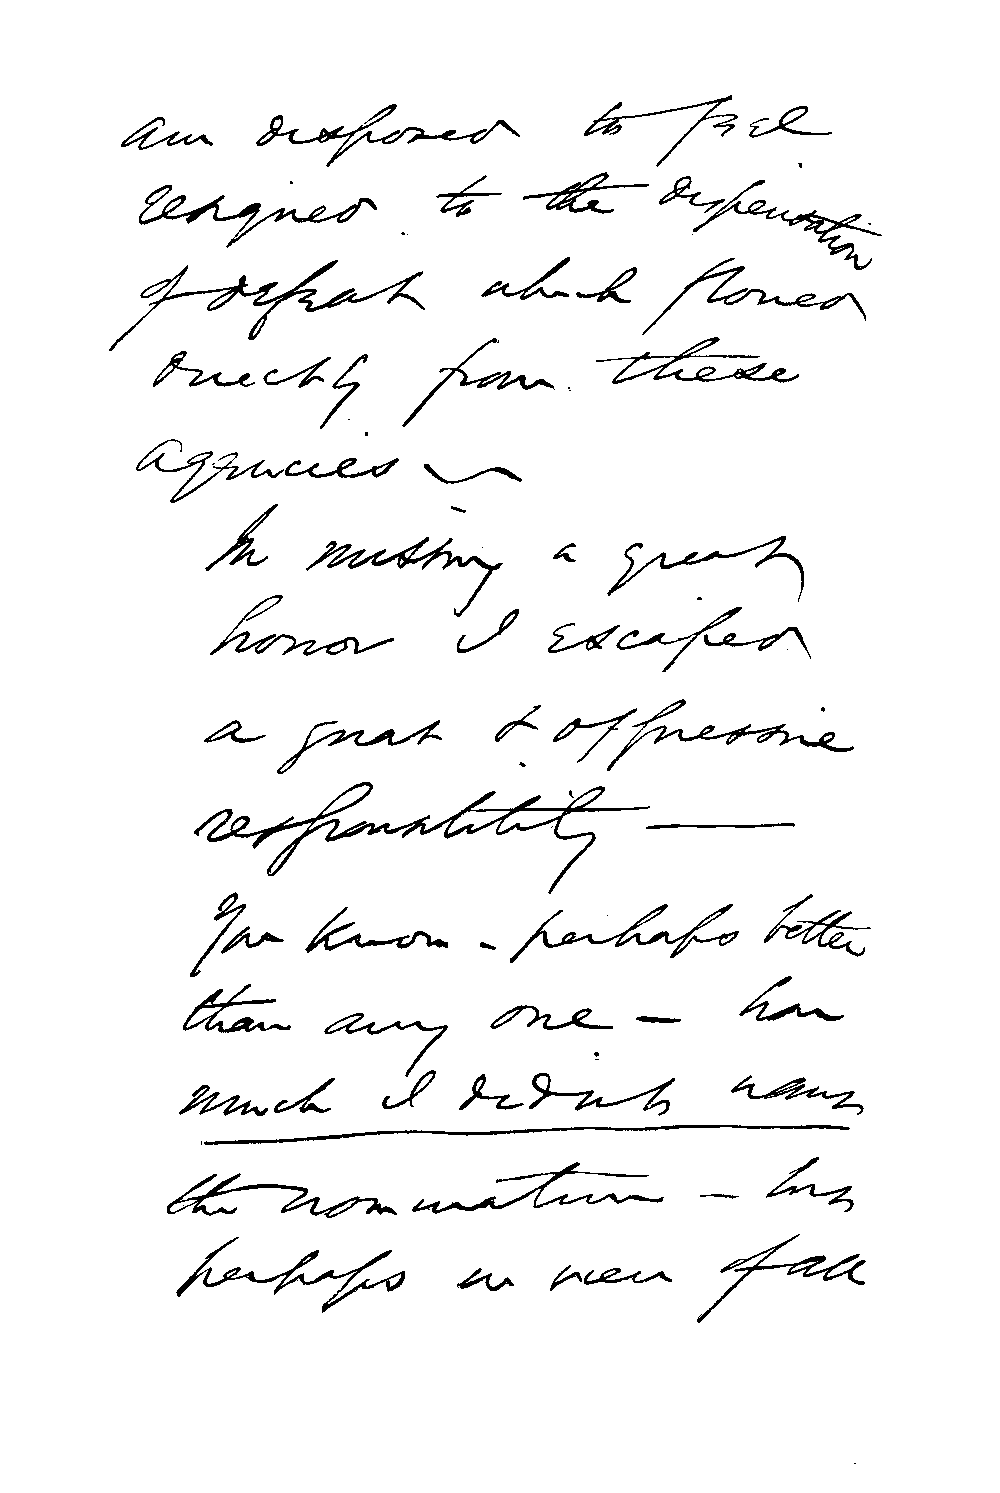 am disposed to feel
resigned to the dispensation
of defeat which flowed
directly from these
agencies —
In missing a great
honor I escaped
a great & oppressive
responsibility —
You know - perhaps better
than any one — how
much I didn't want
the nomination — but
perhaps in view of all